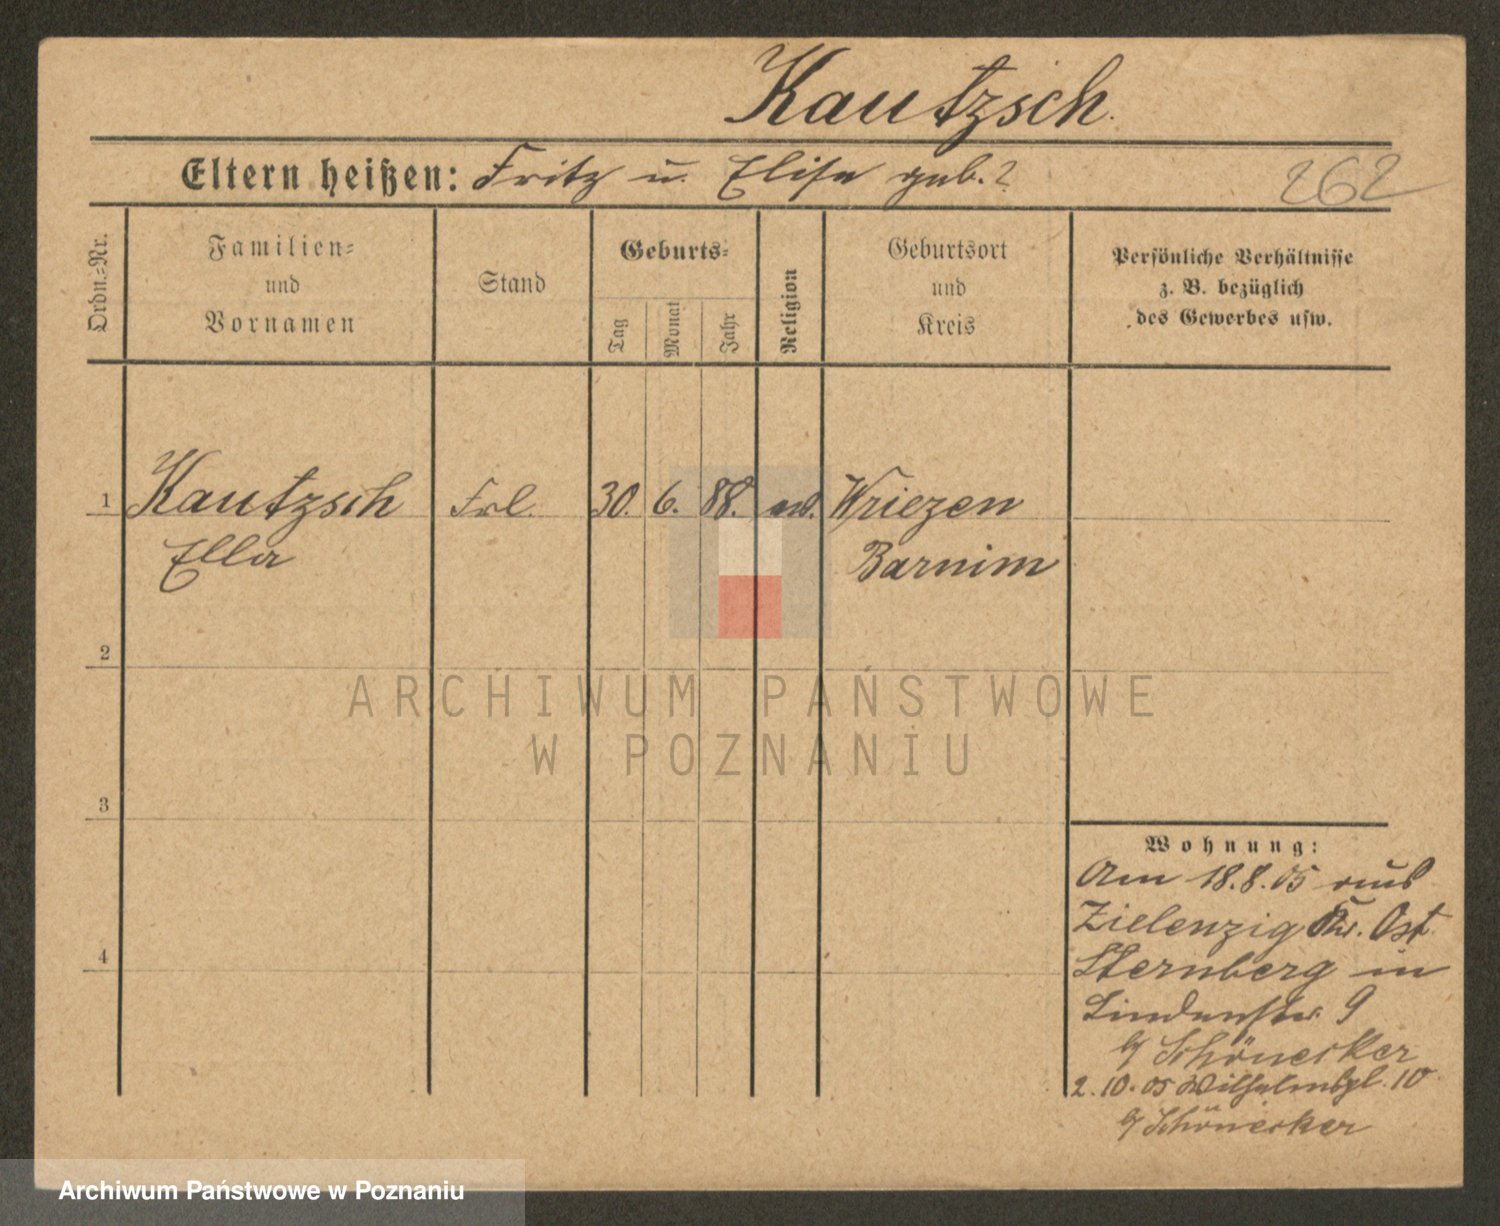 Kautzsch.
Eltern heißen: Fritz u. Elise geb.?
262
Ordn.-Nr.
Familien-
und
Vornamen
Stand
Geburts-
Tag
Monat
Jahr
Religion
Geburtsort
und
Kreis
Persönliche Verhältnisse
z. B. bezüglich
des Gewerbes usw.
1 Kautzsch Frl. 30. 6. 88. ev. Wriezen
Ella Barnim
2
3
4
ARCHIWUM PAŃSTWOWE
W POZNANIU
Wohnung:
Am 18.8.05 aus
Zielenzig Kr. Ost
Sternberg in
Lindenstr. 9
b/ Schönecker
2.10.05 Wilhelmspl. 10
b/ Schönecker
Archiwum Państwowe w Poznaniu